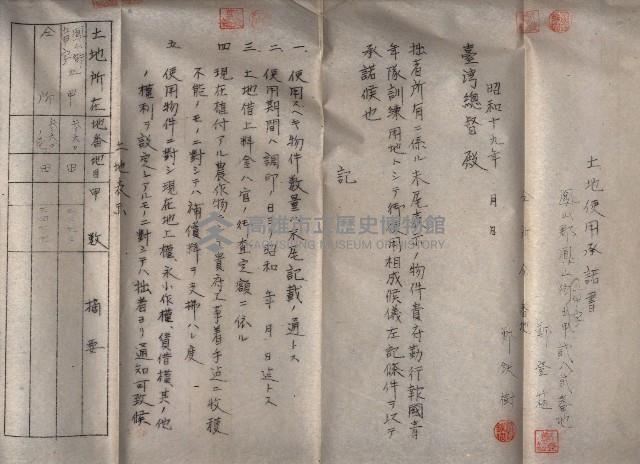 土地使用承諾書
鳳山郡鳳山街北甲貳八貳番地
鄭登
仝所仝番地
鄭欽樹
昭和十九年 月 日
臺灣總督殿
拙者所有ニ係ル末尾表示ノ物件貴府勤行報國青
年隊訓練用地トシテ御使用相成候儀左記條件ヲ以テ
承諾候也
記
一、使用スヘキ物件數量ハ末尾記載ノ通トス
二、使用期間ハ調印ノ日ヨリ昭和 年 月 日迄トス
三、土地借上料金ハ官ノ査定額ニ依ル
四、現在植付アル農作物ハ貴府工事着手迄ニ收穫
不能ノモノニ對シテハ補償料ヲ支拂ハレ度
五、使用物件ニ對シ現在地上權、永小作權、賃借權、其ノ他
ノ權利ヲ設定シアルモノニ對シテハ拙者ヨリ通知可致候
土地表示
土地所在 地番 地目 甲數 摘要
鳳山郡 田
仝所 田
高雄市立歷史博物館
KAOHSIUNG MUSEUM OF HISTORY